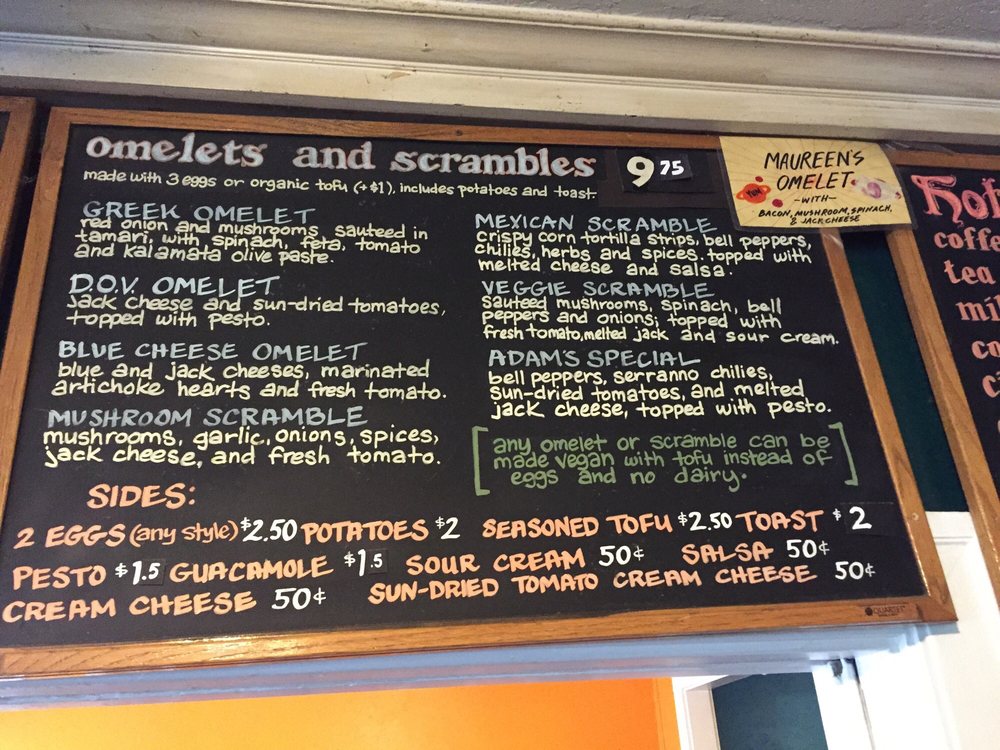 omelets and scrambles 9 75
made with 3 eggs or organic tofu (+$1), includes potatoes and toast.
GREEK OMELET
red onion and mushrooms, sauteed in
tamari, with spinach, feta, tomato
and kalamata olive paste.
D.O.V. OMELET
Jack cheese and sun-dried tomatoes,
topped with pesto.
BLUE CHEESE OMELET
blue and jack cheeses, marinated
artichoke hearts and fresh tomato.
MUSHROOM SCRAMBLE
mushrooms, garlic, onions, spices,
jack cheese, and fresh tomato.
MEXICAN SCRAMBLE
crispy corn tortilla strips, bell peppers,
chilies, herbs and spices. topped with
melted cheese and salsa.
VEGGIE SCRAMBLE
sauteed mushrooms, spinach, bell
peppers and onions; topped with
fresh tomato, melted jack and sour cream.
ADAM'S SPECIAL
bell peppers, serranno chilies,
sun-dried tomatoes, and melted
jack cheese, topped with pesto.
[any omelet or scramble can be
made vegan with tofu instead of
eggs and no dairy.]
SIDES:
2 EGGS (any style) $2.50 POTATOES $2 SEASONED TOFU $2.50 TOAST $2
PESTO $1.5 GUACAMOLE $1.5 SOUR CREAM 50¢ SALSA 50¢
CREAM CHEESE 50¢ SUN-DRIED TOMATO CREAM CHEESE 50¢
QUARTET
MAUREEN'S
OMELET
YUM
-WITH-
BACON, MUSHROOM, SPINACH,
& JACK CHEESE
tea